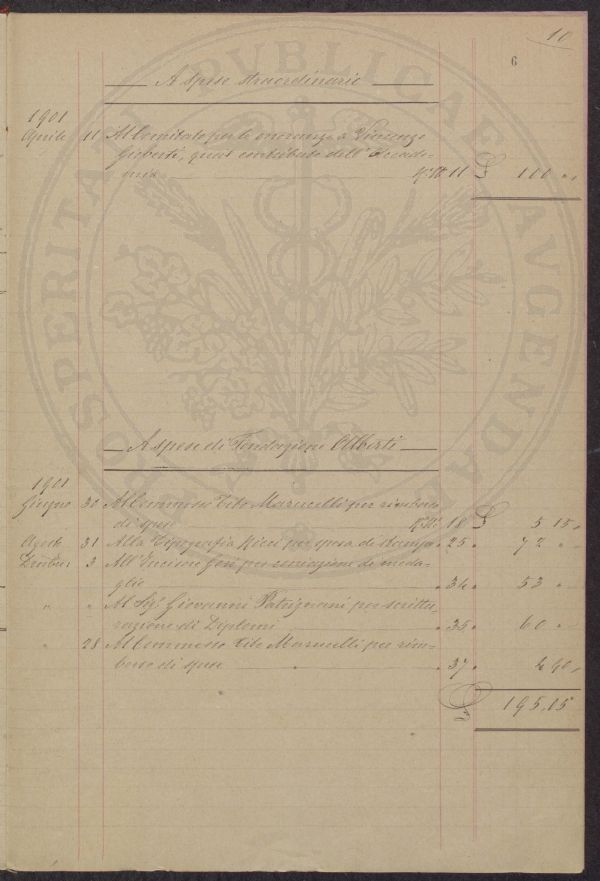 10
6
A spese straordinarie
1901
Aprile 11 Al Comitato per le onoranze a Vincenzo
Gioberti, qual contributo dell'Accade-
mia 11 £ 100 „
A spese di Fondazione Alberti
1901
Giugno 30 Al Commesso Tito Marucelli per rimborso
di spese 18 £ 5 15
Agosto 31 Alla Tipografia Ricci per spesa di stampa 25 72 „
3 All'Incisore Gori per coniazione di meda-
glie 34 53 „
„ „ Al Sigr Giovanni Patrignani per scrittu-
razione di Diplomi 35 60 „
„ 28 Al Commesso Tito Marucelli per rim-
borso di spese 37
£ 195.15
PROSPERITATI PVBLICAE AVGENDAE